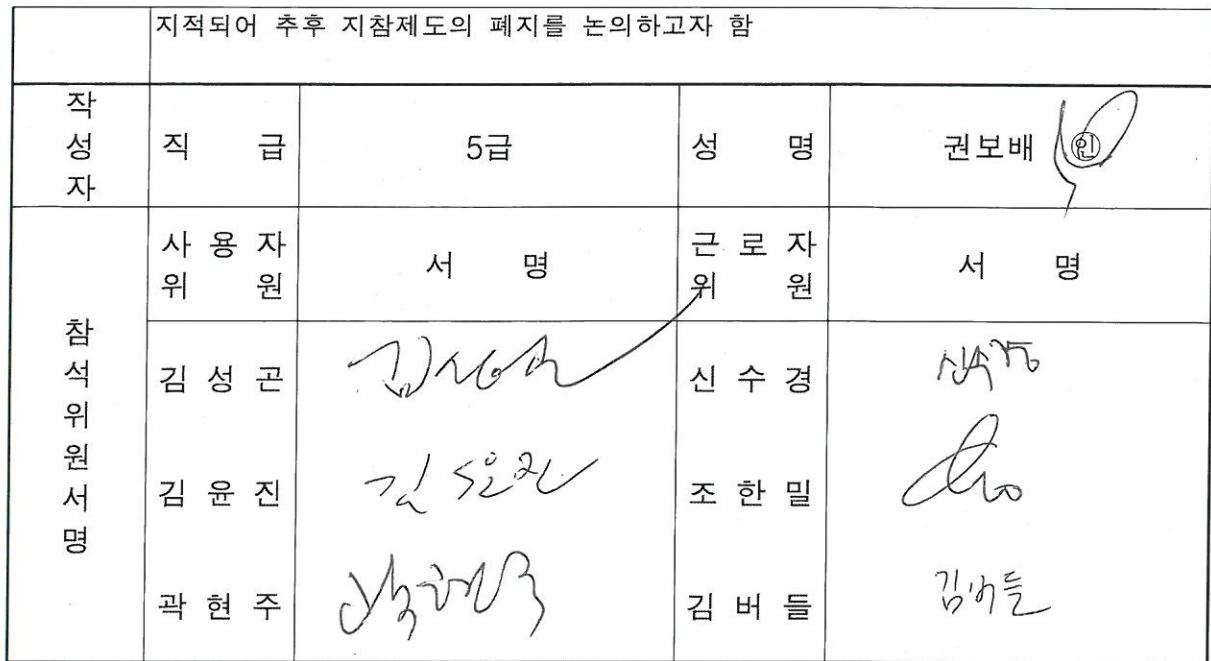 지적되어 추후 지참제도의 폐지를 논의하고자 함
작성자 직 급 5급 성 명 권보배 ㊞
참석위원서명
사 용 자 위 원 서 명 근 로 자 위 원 서 명
김 성 곤 김성곤 신 수 경 신수경
김 윤 진 김윤진 조 한 밀
곽 현 주 곽현주 김 버 들 김버들